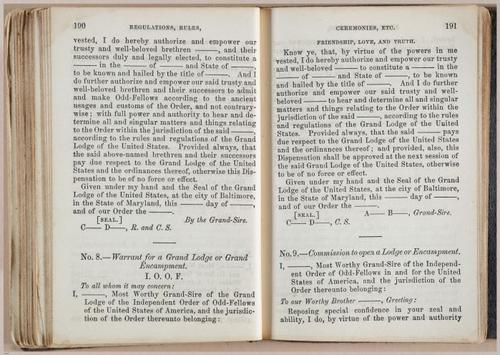 190 REGULATIONS, RULES,
vested, I do hereby authorize and empower our
trusty and well-beloved brethren ———, and their
successors duly and legally elected, to constitute a
——— in the ——— of ——— and State of ———,
to be known and hailed by the title of ———. And I
do further authorize and empower our said trusty and
well-beloved brethren and their successors to admit
and make Odd-Fellows according to the ancient
usages and customs of the Order, and not contrary-
wise; with full power and authority to hear and de-
termine all and singular matters and things relating
to the Order within the jurisdiction of the said ———,
according to the rules and regulations of the Grand
Lodge of the United States. Provided always, that
the said above-named brethren and their successors
pay due respect to the Grand Lodge of the United
States and the ordinances thereof, otherwise this Dis-
pensation to be of no force or effect.
Given under my hand and the Seal of the Grand
Lodge of the United States, at the city of Baltimore,
in the State of Maryland, this ——— day of ———,
and of our Order the ———.
[SEAL.] By the Grand-Sire.
C—— D——, R. and C. S.
No. 8.—Warrant for a Grand Lodge or Grand
Encampment.
I. O. O. F.
To all whom it may concern:
I, ———, Most Worthy Grand-Sire of the Grand
Lodge of the Independent Order of Odd-Fellows
of the United States of America, and the jurisdic-
tion of the Order thereunto belonging:
CEREMONIES, ETC. 191
FRIENDSHIP, LOVE, AND TRUTH.
Know ye, that, by virtue of the powers in me
vested, I do hereby authorize and empower our trusty
and well-beloved ——— to constitute a ——— in the
——— of ——— and State of ———, to be known
and hailed by the title of ———. And I do further
authorize and empower our said trusty and well-
beloved ——— to hear and determine all and singular
matters and things relating to the Order within the
jurisdiction of the said ———, according to the rules
and regulations of the Grand Lodge of the United
States. Provided always, that the said ——— pays
due respect to the Grand Lodge of the United States
and the ordinances thereof; and provided, also, this
Dispensation shall be approved at the next session of
the said Grand Lodge of the United States, otherwise
to be of no force or effect.
Given under my hand and the Seal of the Grand
Lodge of the United States, at the city of Baltimore,
in the State of Maryland, this ——— day of ———,
and of our Order the ———.
[SEAL.] A—— B——, Grand-Sire.
C—— D——, C. S.
No. 9.—Commission to open a Lodge or Encampment.
I, ———, Most Worthy Grand-Sire of the Independ-
ent Order of Odd-Fellows in and for the United
States of America, and the jurisdiction of the
Order thereunto belonging:
To our Worthy Brother ———, Greeting:
Reposing special confidence in your zeal and
ability, I do, by virtue of the power and authority